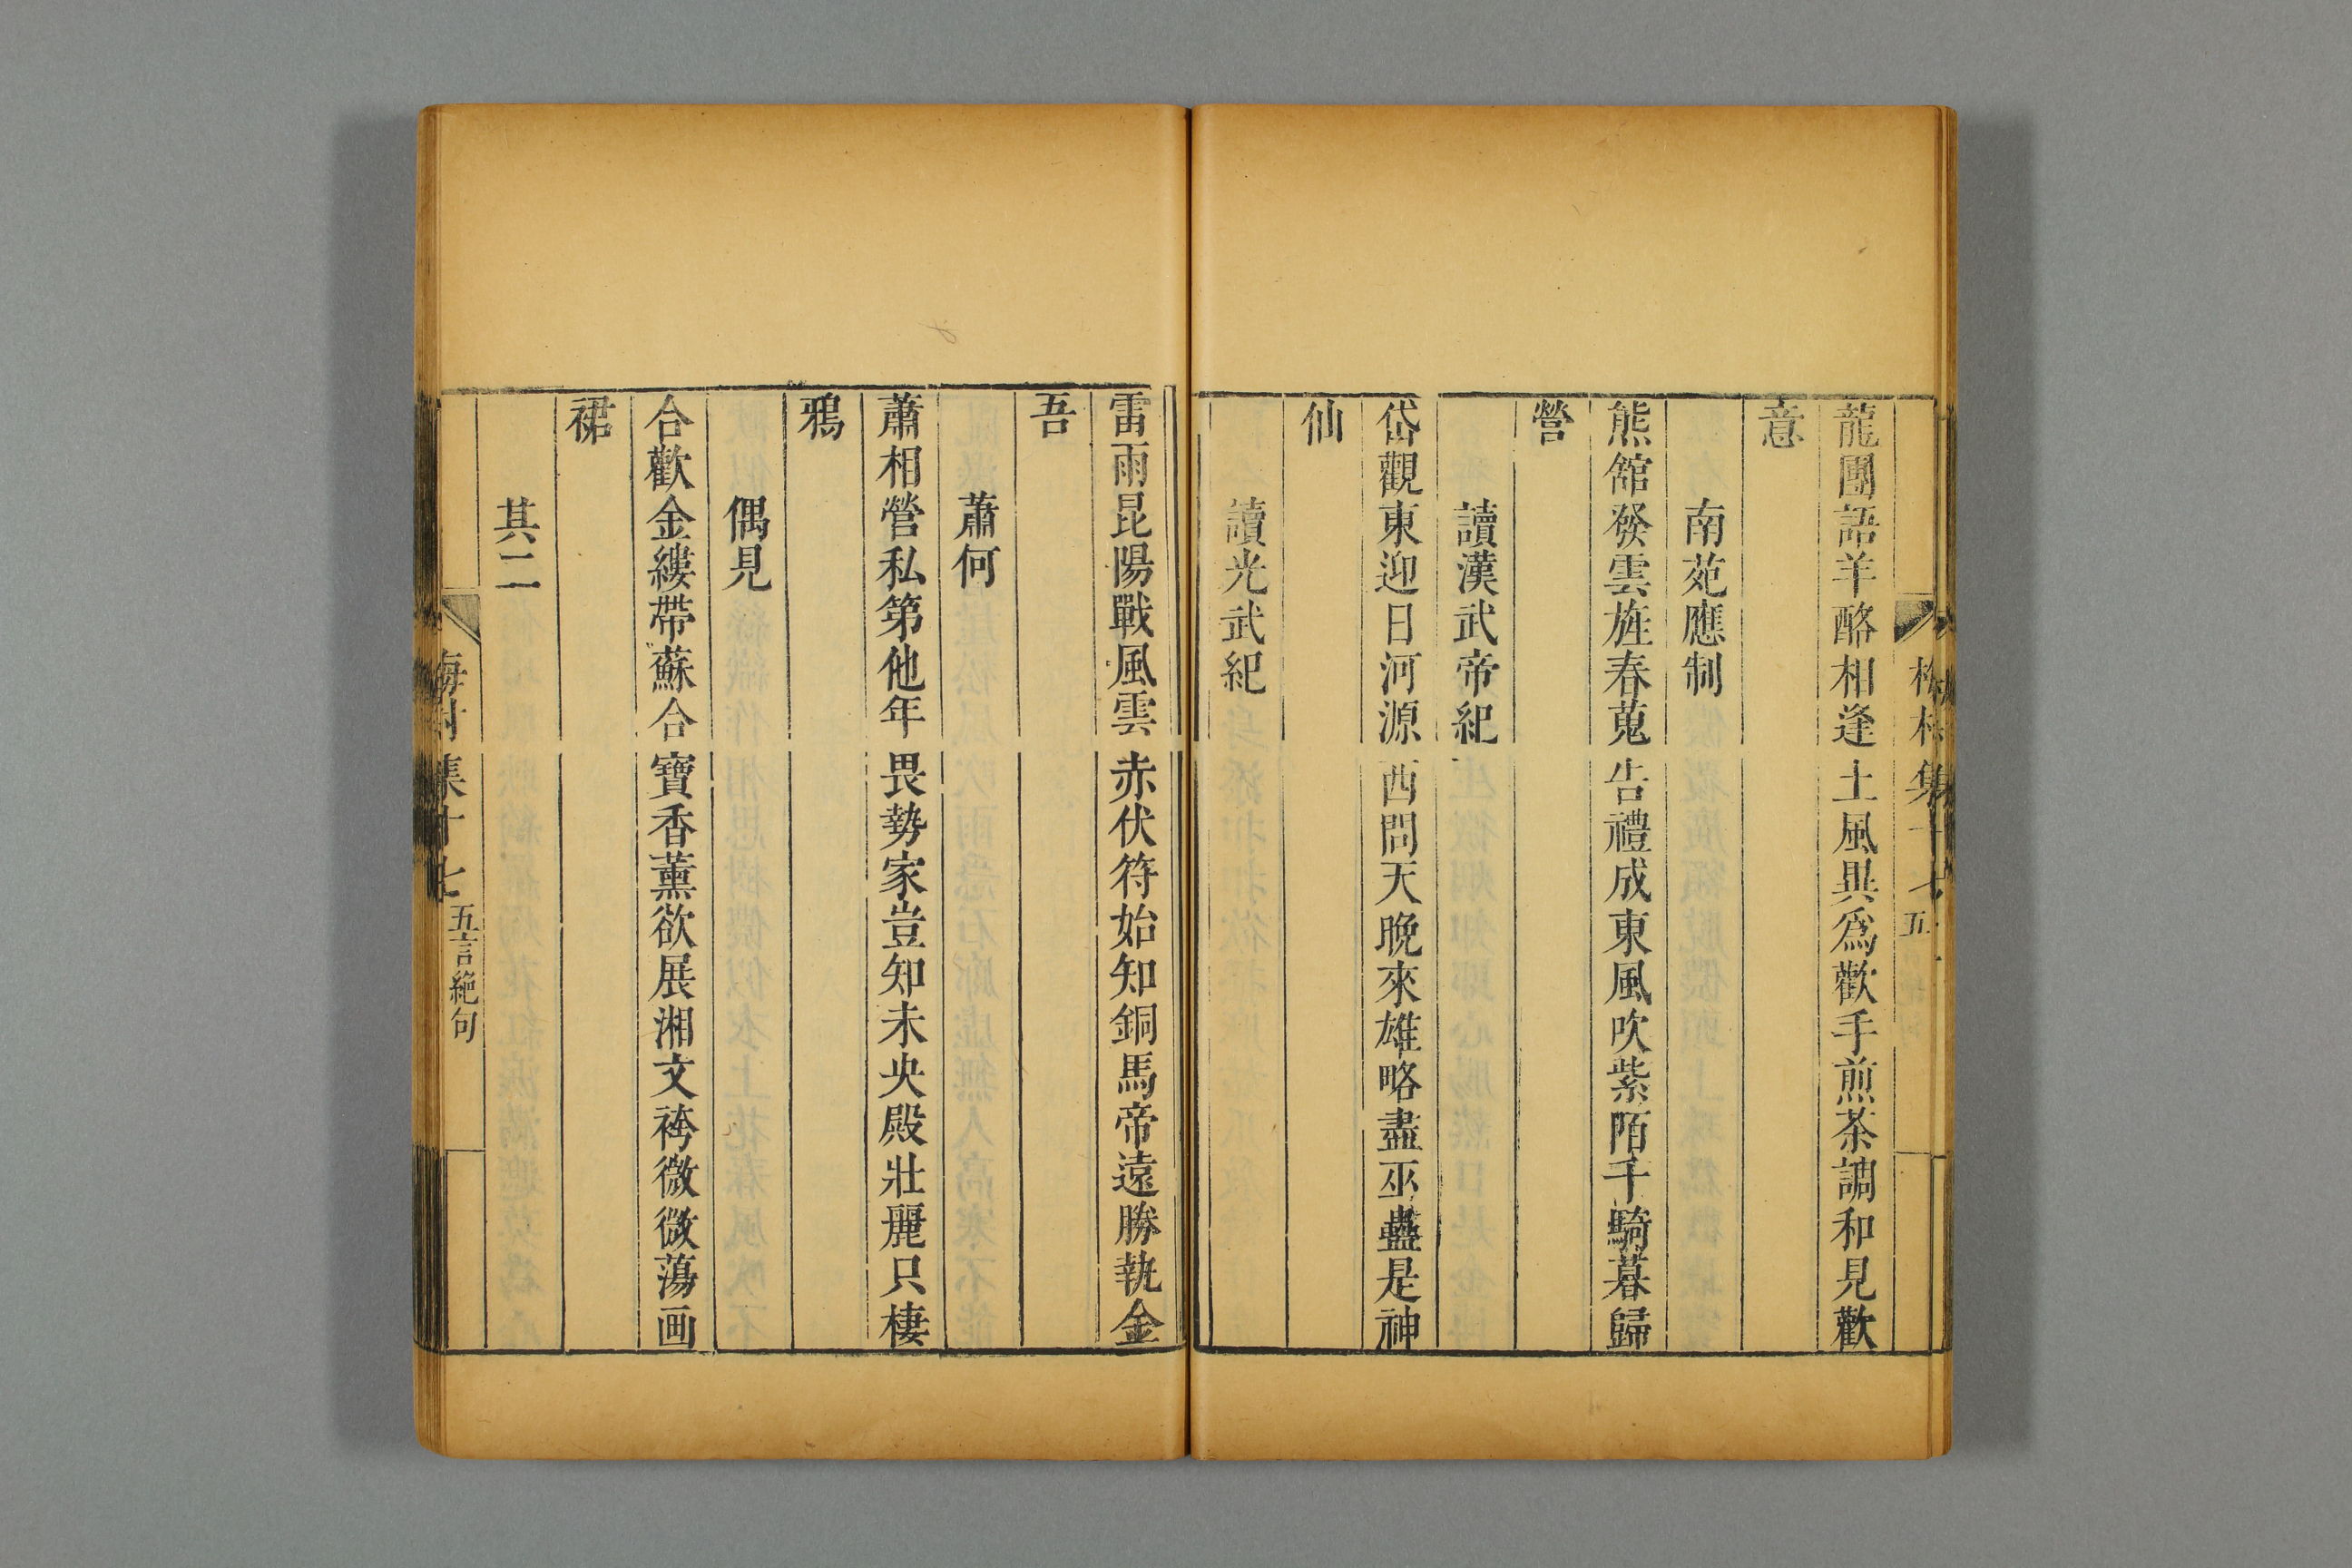 龍團語羊酪相逢土風與為歡手煎茶調和見歡
意
南苑應制
熊舘發雲旌春蒐告禮成東風吹紫陌千騎暮歸
營
讀漢武帝紀
岱觀東迎日河源西問天晚來雄略盡巫蠱是神
仙
讀光武紀
雷雨昆陽戰風雲赤伏符始知銅馬帝遠勝執金
吾
蕭何
蕭相營私第他年畏勢家豈知未央殿壯麗只棲
鴉
偶見
合歡金縷帶蘇合寶香薰欲展湘文袴微微蕩画
裙
其二
梅村集十七 五言絕句